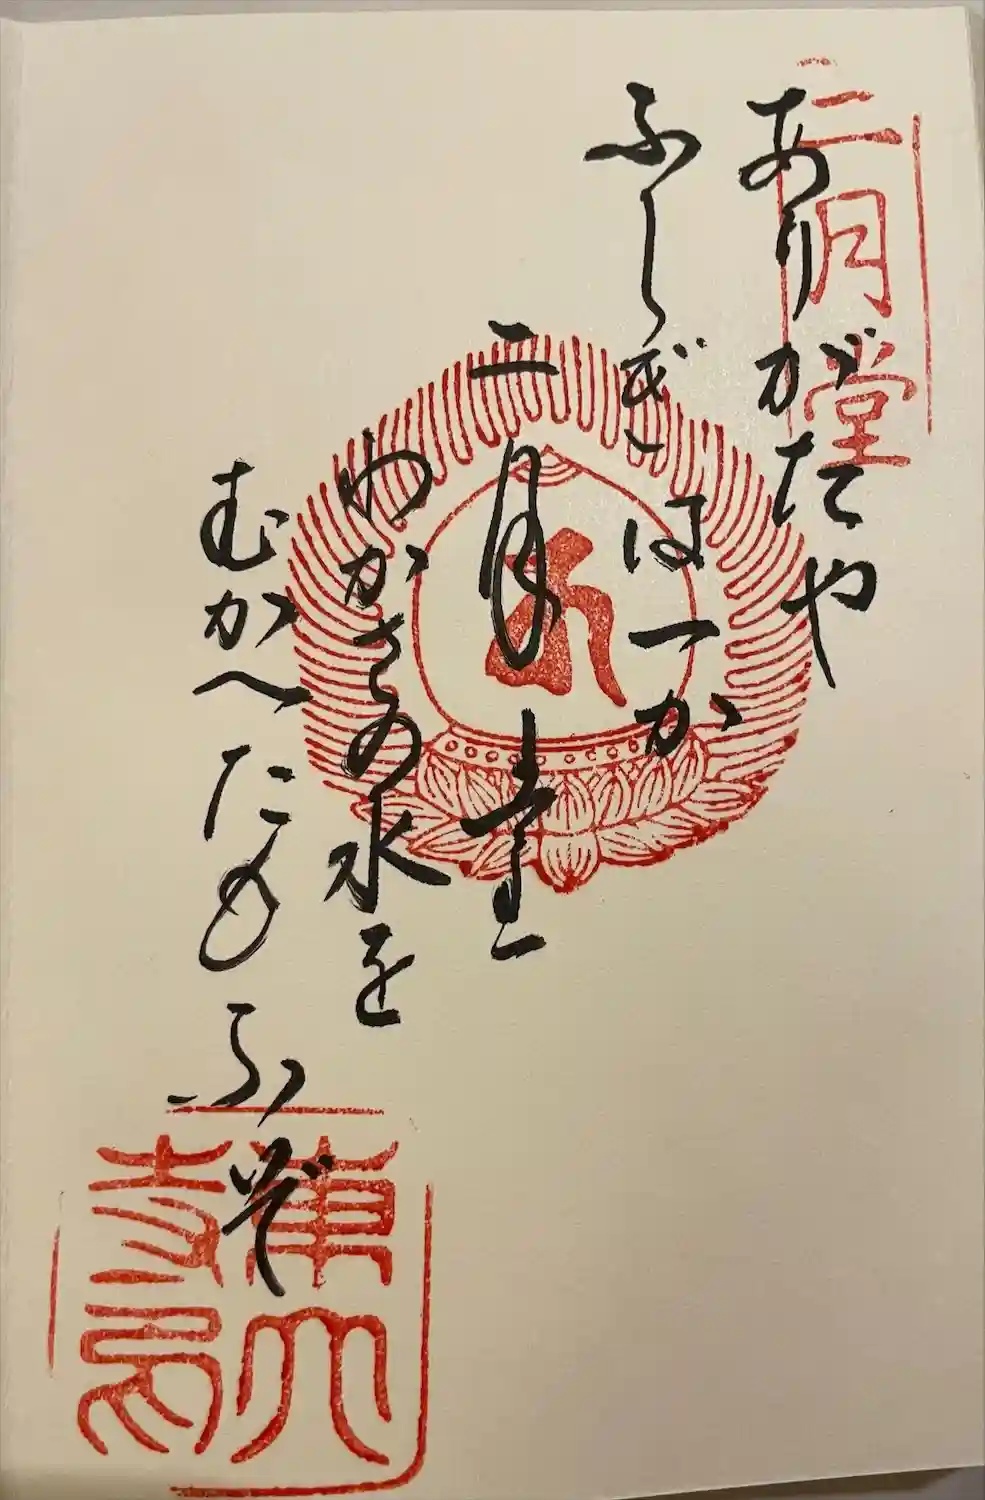 二月堂
ありがたや
ふしぎは一か
二月堂
わかさの水を
むかへたもふぞ
東大寺印